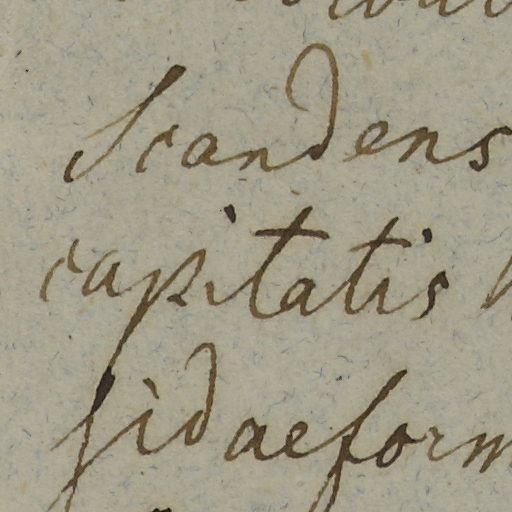 Scandens
capitatis
sidaeform